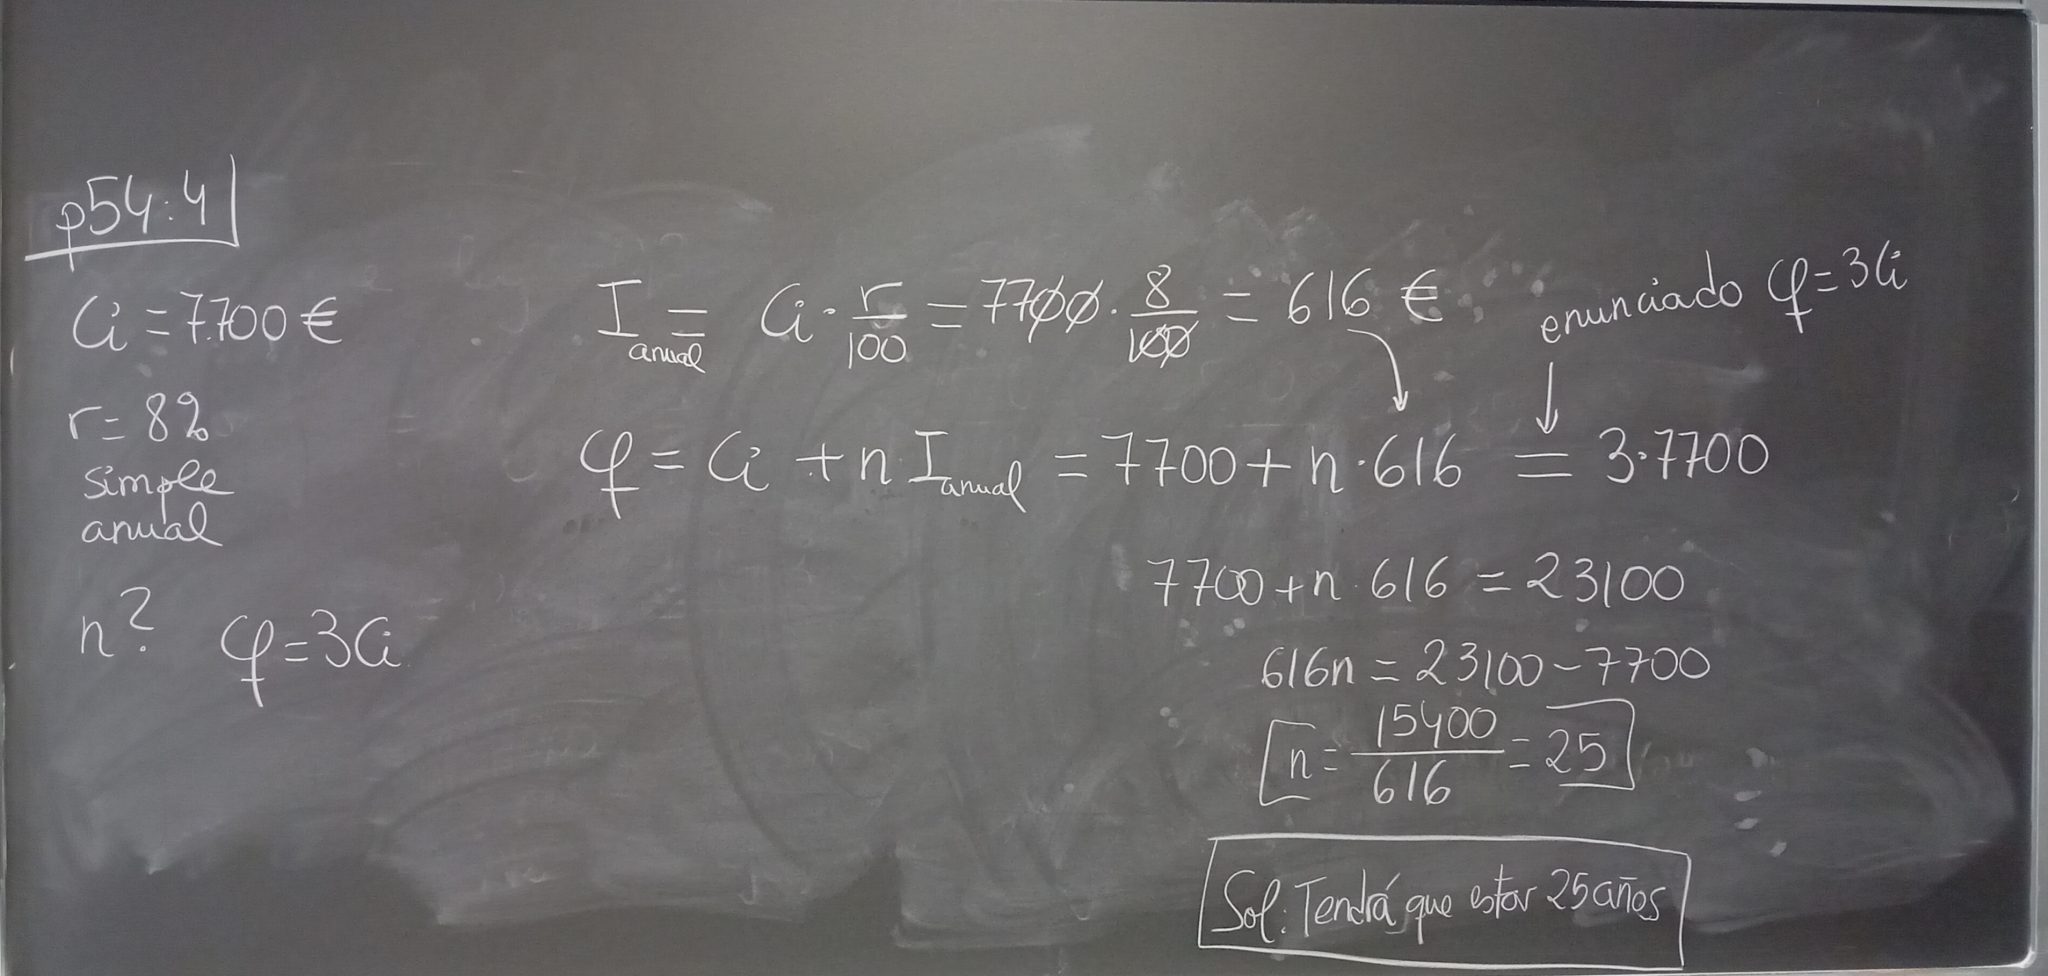 p54:4
Ci = 7.700 €
r = 8%
simple
anual
n? Cf = 3Ci
I anual = Ci · r/100 = 7700 · 8/100 = 616 €
enunciado Cf = 3Ci
Cf = Ci + n I anual = 7700 + n · 616 = 3·7700
7700 + n · 616 = 23100
616n = 23100 - 7700
n = 15400/616 = 25
Sol: Tendrá que estar 25 años